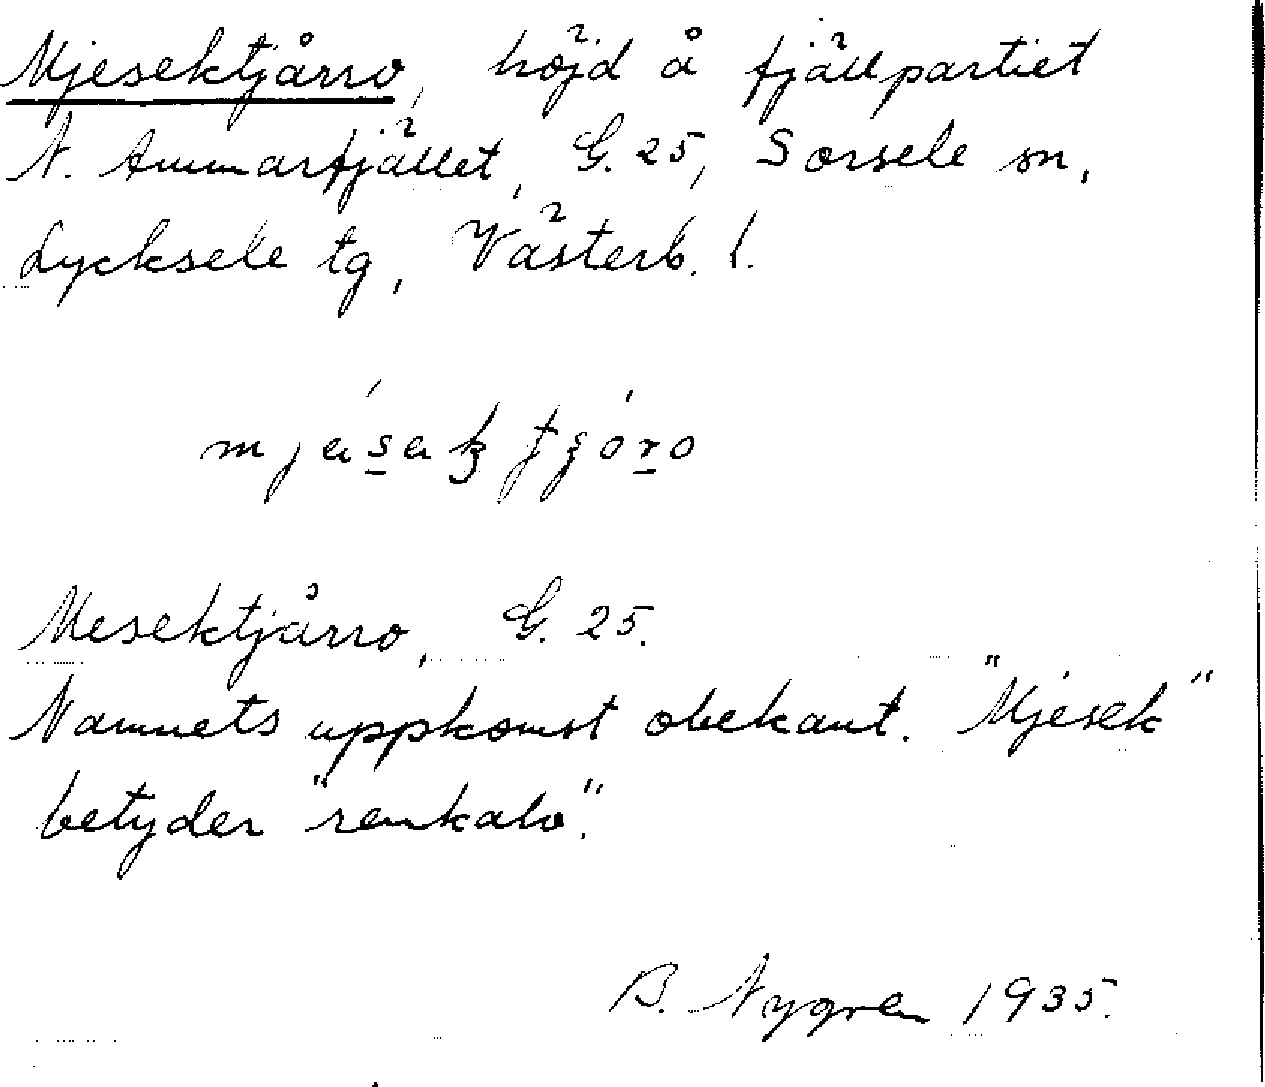 Mjesektjårro, höjd å fjällpartiet
N. Ammarfjället, G. 25, Sorsele sn,
Lycksele tg, Västerb. l.
Mesektjårro, G. 25.
Namnets uppkomst obekant. "Mjesek"
betyder "renkalv".
B. Nygren 1935.